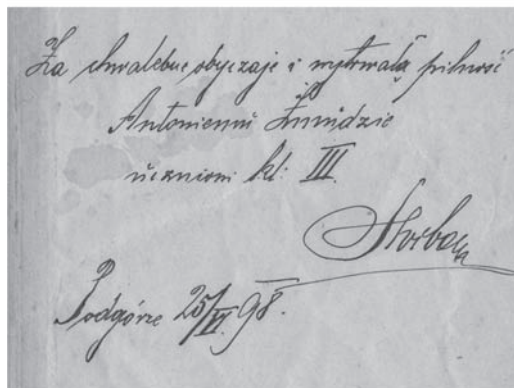 Za chwalebne obyczaje i wytrwałą pilność
Antoniemu Żmudzie
uczniowi kl: III.
Podgórze 25/VI. 98.